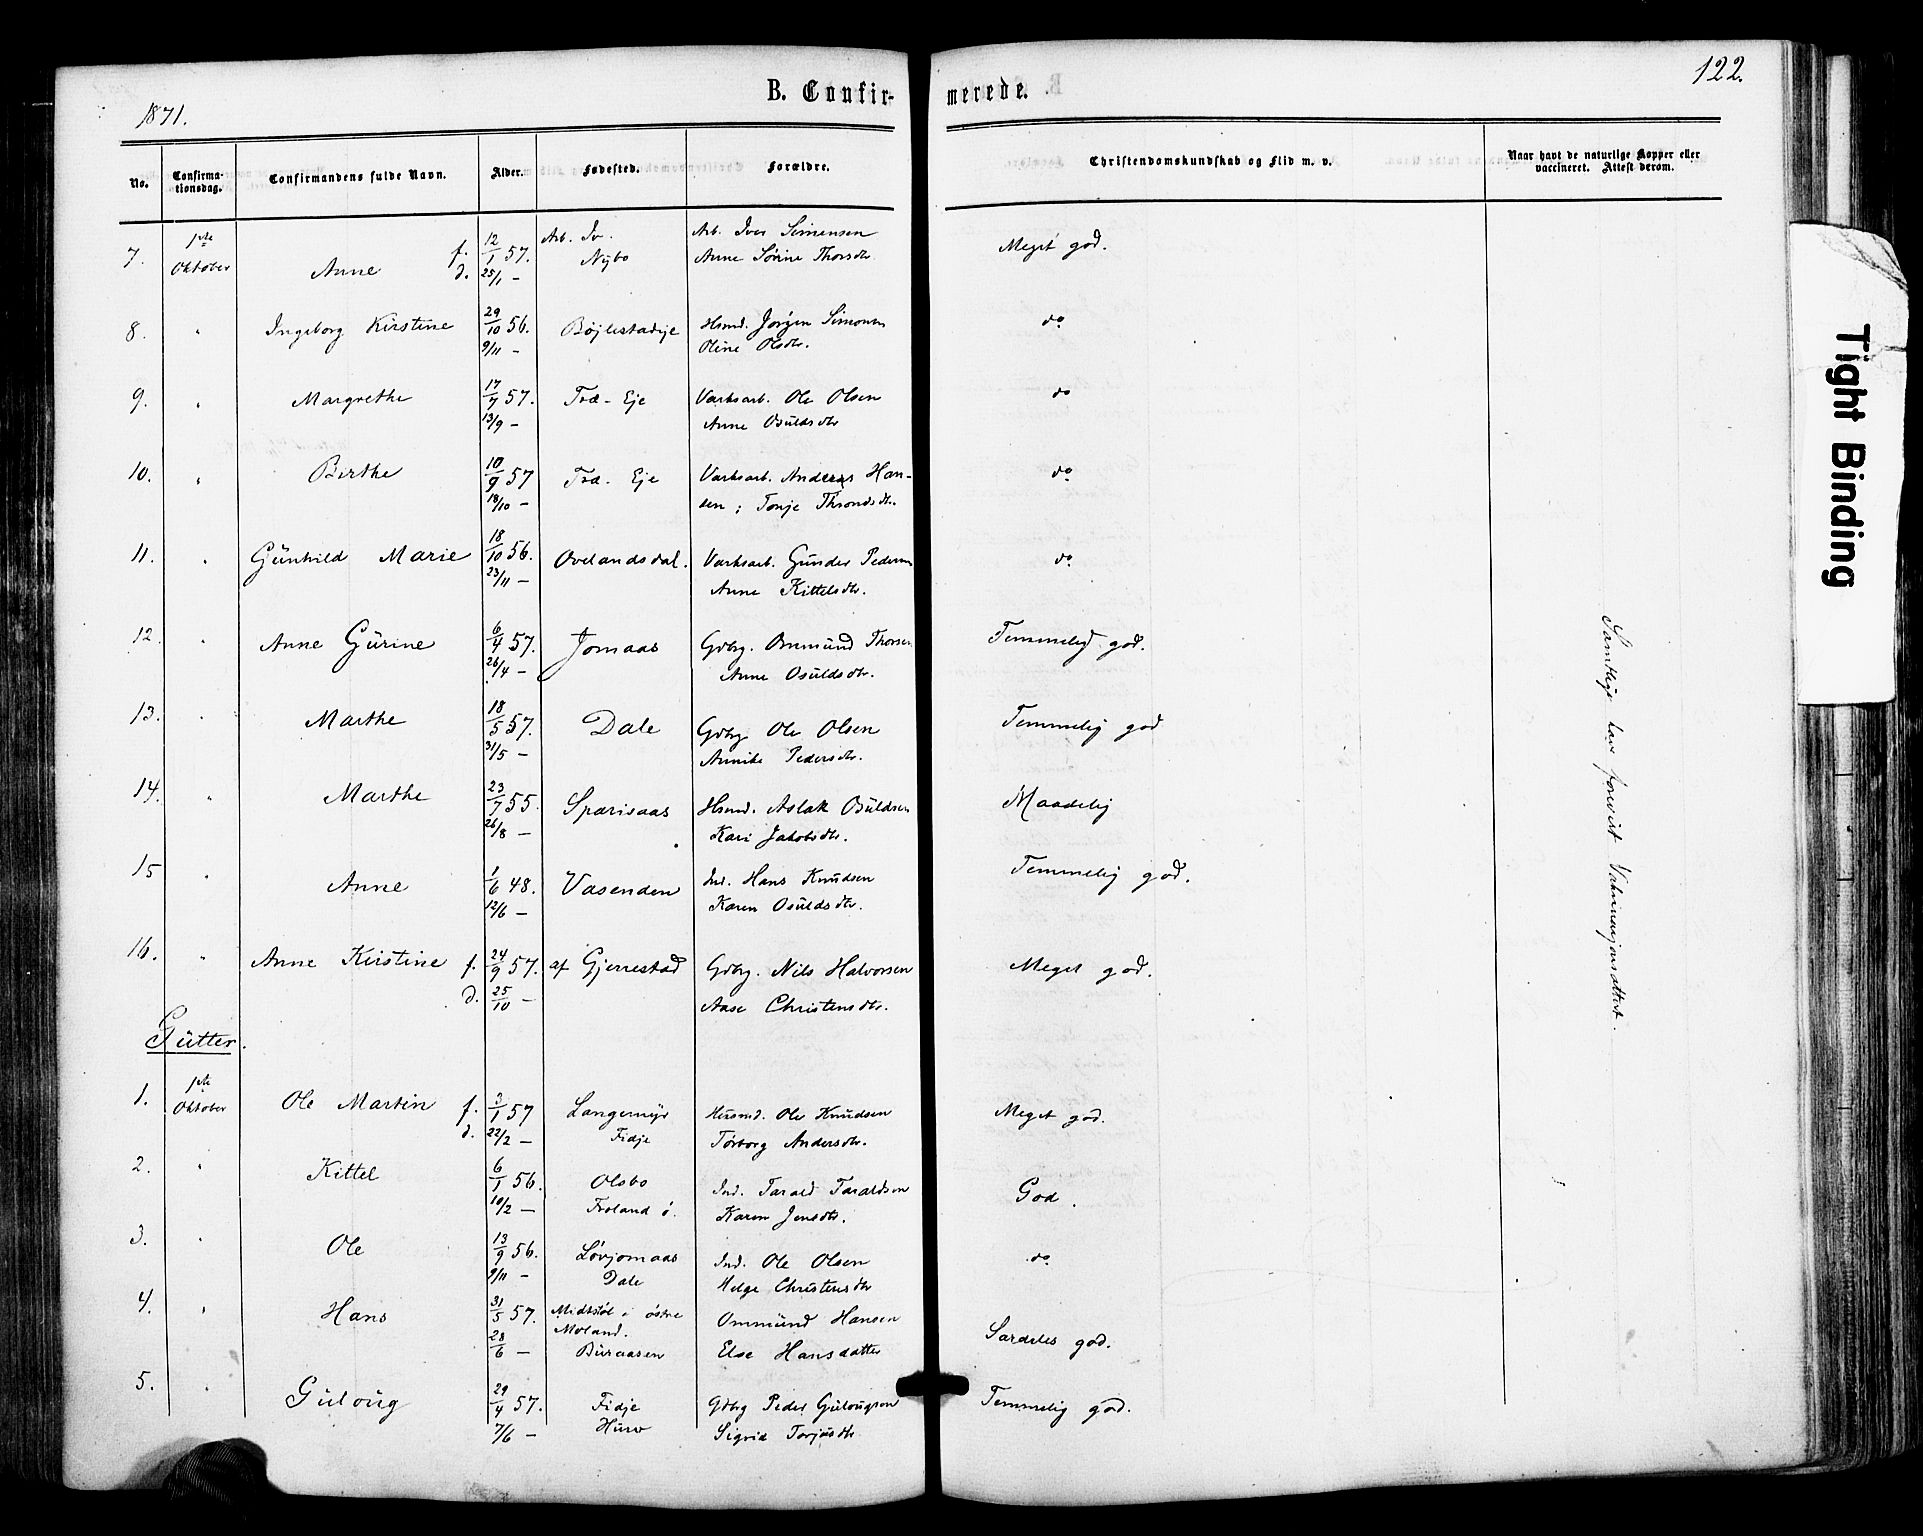 122.
B. Confir- merede.
1871.
No. Confirma-tionsdag. Confirmandens fulde Navn. Alder. Fødested. Forældre. Christendomskundskab og Flid m. v. Naar havt de naturlige Kopper eller vaccineret. Attest derom.
7. 1ste Oktober Anne f. 12/1 57. d. 25/1 - Arb. Iv. Nybo Arb. Iver Simensen Anne Sørine Thorsdtr. Meget god.
8. " Ingeborg Kirstine 29/10 56. 9/11 - Bøjlestadeje Hsmd. Jørgen Simonsen Oline Olsdtr. do
9. " Margrethe 17/7 57. 13/9 - Træ-Eje Værksarb. Ole Olsen Anne Osuldsdtr do
10. " Berthe 10/9 57 18/10 - Træ-Eje Værksarb. Anders Han-sen; Tonje Throndsdtr. do
11. " Gunhild Marie 18/10 56. 23/11 - Ovelandsdal. Værksarb. Gunder Pedersen Anne Kittelsdtr. do
12. " Anne Gurine 6/4 57. 26/4 - Jomaas Gdbrg. Ommund Thorsen Anne Osuldsdtr. Temmelig god.
13. " Marthe 18/5 57. 31/5 - Dale Gdbrg Ole Olsen Annike Pedersdtr. Temmelig god
14. " Marthe 23/7 55. 26/8 - Sparisaas Hsmd. Aslak Osuldsen Kari Jakobsdtr. Maadelig
15 " Anne 1/6 48. 12/6 - Væsenden Ind. Hans Knudsen Karen Osuldsdtr. Temmelig god.
16. " Anne Kirstine f. 24/9 57. d. 25/10 - af Gjerrestad Gdbrg. Nils Halvorsen Aase Christensdtr. Meget god.
Gutter.
1. 1ste Oktober Ole Martin f. 2/1 57 d. 22/2 - Langemyr Fidje Husmd. Ole Knudsen Torborg Andersdtr. Meget god.
2. " Kittel 6/1 56. 10/2 - Olsbo Froland ö. Ind. Tarald Taraldsen Karen Jensdtr. God.
3. " Ole 13/9 56. 9/11 - Løvjomaas Dale Ind. Ole Olsen Helge Christensdtr do
4. " Hans 31/5 57. 28/6 - Midtstøl i østre Moland. Buraasen Ommund Hansen Else Hansdatter Særdeles god.
5. " Guloug 29/4 57. 7/6 - Fidje Gdbrg Peder Gulougson Sigrid Torjusdtr Temmelig god.
Samtlige have forevist Vakcinasjonsattest.
Tight Binding